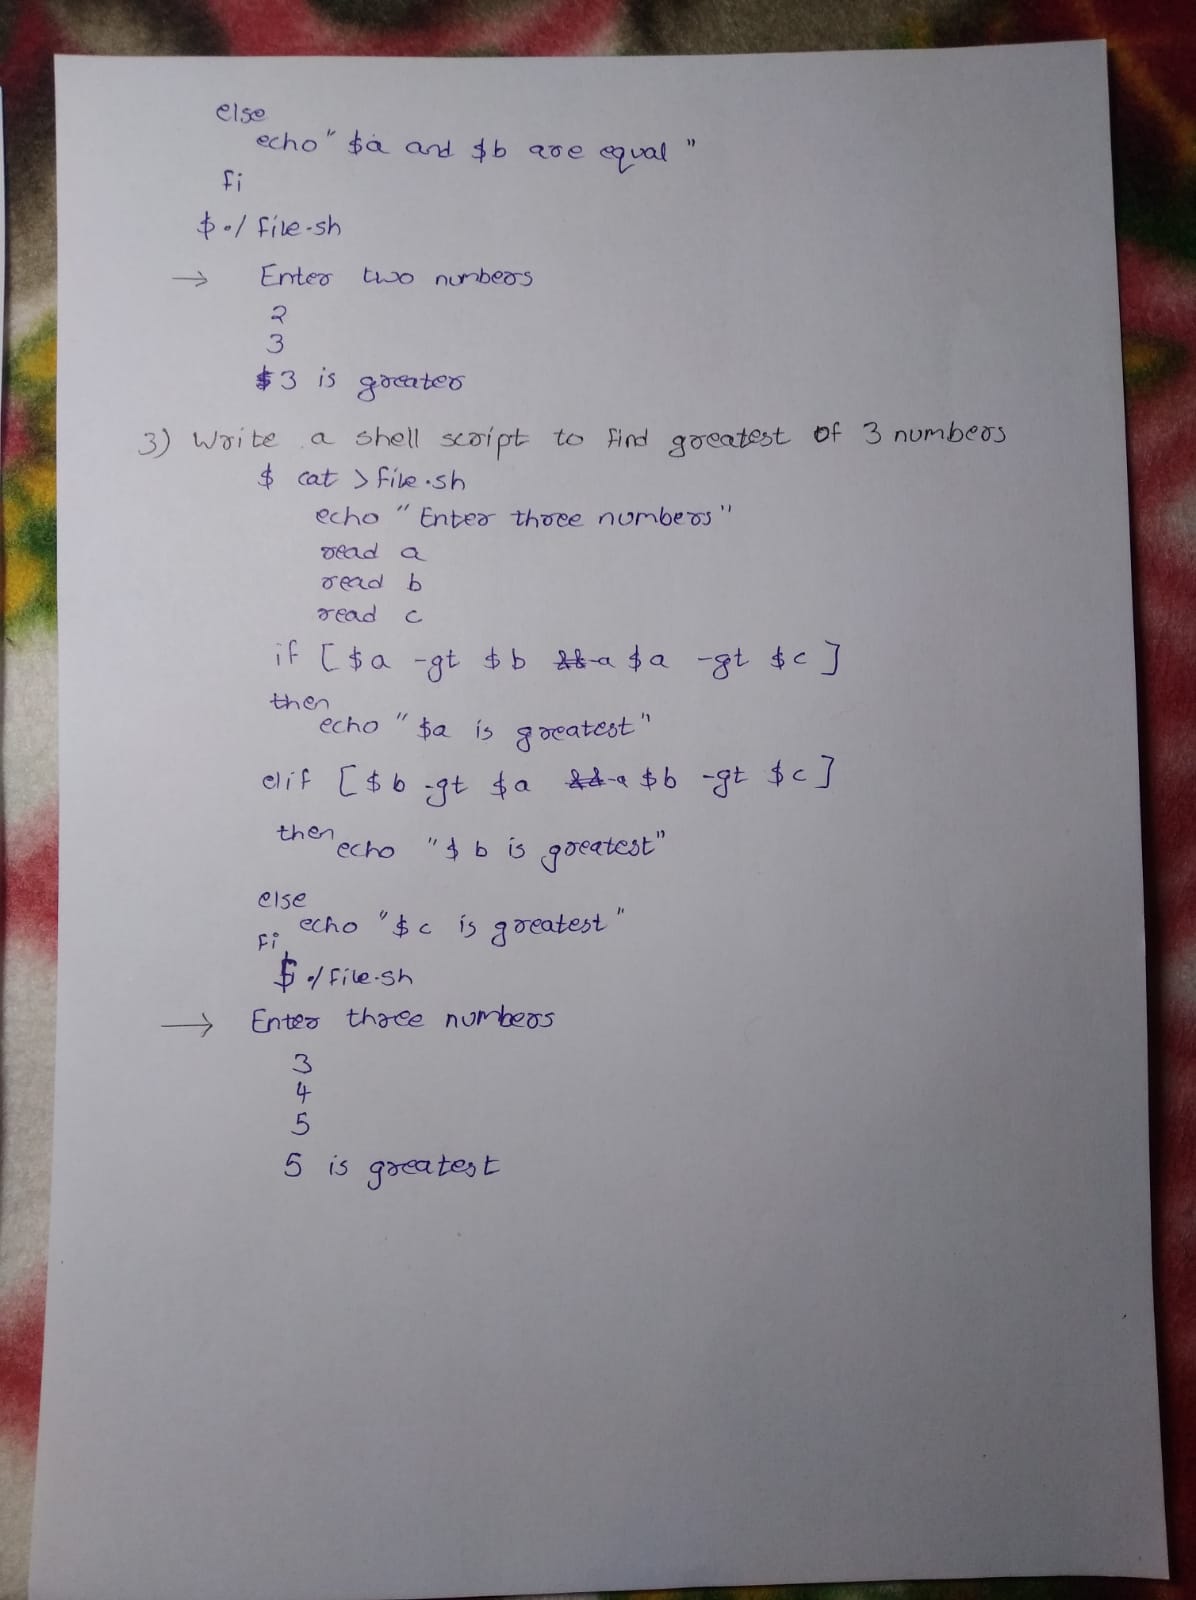 else
echo " $a and $b are equal "
fi
$ ./ file.sh
→ Enter two numbers
2
3
3 is greater
3) Write a shell script to find greatest of 3 numbers
$ cat > file.sh
echo " Enter three numbers"
read a
read b
read c
if [ $a -gt $b -a $a -gt $c ]
then
echo " $a is greatest"
elif [ $b -gt $a -a $b -gt $c ]
then
echo "$ b is greatest"
else
echo "$c is greatest"
fi
$ ./ file.sh
→ Enter three numbers
3
4
5
5 is greatest